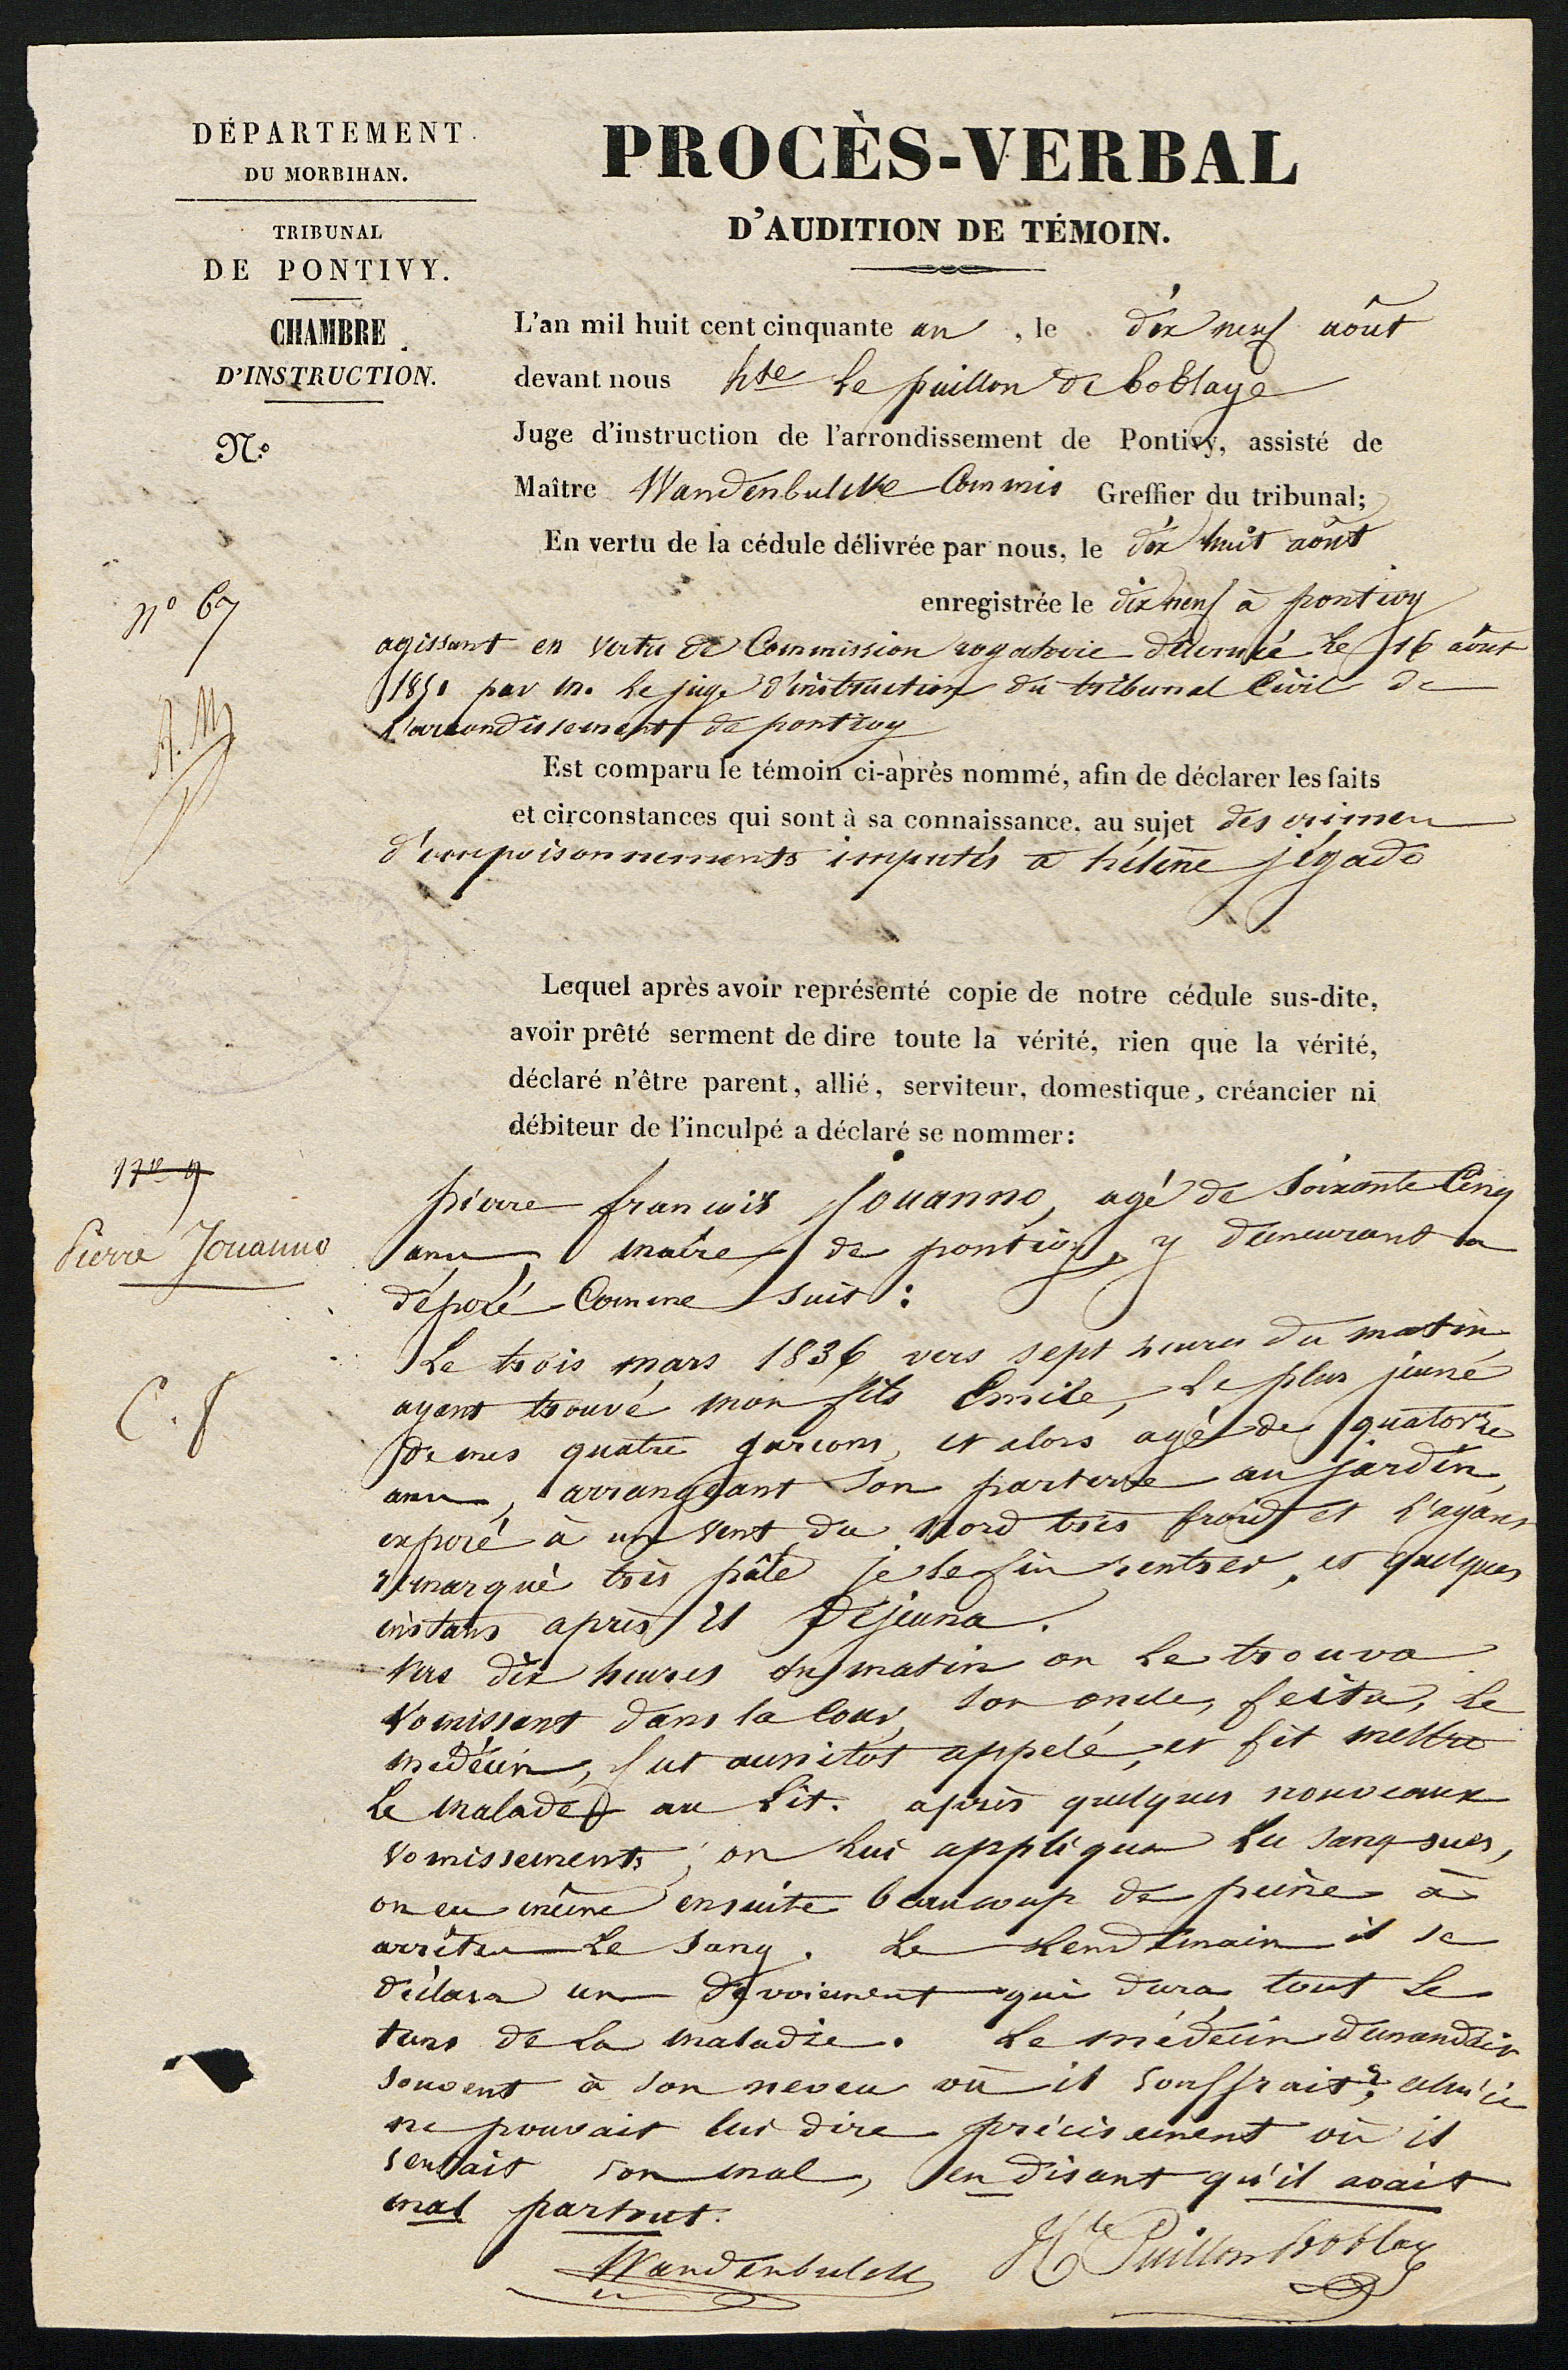 DÉPARTEMENT
DU MORBIHAN.
TRIBUNAL
DE PONTIVY.
CHAMBRE
D'INSTRUCTION.
N.º
nº 67
A. M
PROCÈS-VERBAL
D'AUDITION DE TÉMOIN.
L'an mil huit cent cinquante un , le dix neuf août
devant nous hte Le puillon de boblaye
Juge d'instruction de l'arrondissement de Pontivy, assisté de
Maître Wandenbulcke Commis Greffier du tribunal;
En vertu de la cédule délivrée par nous, le dix huit août
enregistrée le dix neuf à pontivy
agissant en vertu de Commission rogatoire décernée Le 16 août
1851 par m. Le juge d'instruction du tribunal Civil de
L'arrondissement de pontivy
Est comparu le témoin ci-après nommé, afin de déclarer les faits
et circonstances qui sont à sa connaissance, au sujet des crimes
d'empoisonnements imputés à héléne jégado
Lequel après avoir représenté copie de notre cédule sus-dite,
avoir prêté serment de dire toute la vérité, rien que la vérité,
déclaré n'être parent, allié, serviteur, domestique, créancier ni
débiteur de l'inculpé a déclaré se nommer:
Pierre Jouanno
C. f
pierre francois Jouanno, agé de Soixante Cinq
ans, maire de pontivy, y demeurant a
déposé Comme suit :
Le trois mars 1836 vers sept heures du matin
ayant trouvé mon fils Emile, Le plus jeune
de mes quatre garcons, et alors agé de quatorze
ans, arrangeant son parterre au jardin,
exposé à un vent du Nord très froid et l'ayant
remarqué très pâle je le fis rentrer, et quelques
instans après il déjeuna.
Vers dix heures du matin on Le trouva
Vomissant dans la Cour, son oncle, festu, Le
médecin, fut aussitot appelé, et fit mettre
Le malade au Lit. après quelques nouveaux
vomissements, on Lui appliqua des sang-sues,
on eu même ensuite beaucoup de peine à
arrêter Le sang. Le Lendemain il se
déclara un dévoiement qui dura tout Le
tems de La maladie. Le médecin demandait
souvent à son neveu où il souffrait, celui ci
ne pouvait lui dire précisément où il
sentait son mal, en disant qu'il avait
mal partout.
Wandenbulcke Hte Puillon Boblaye